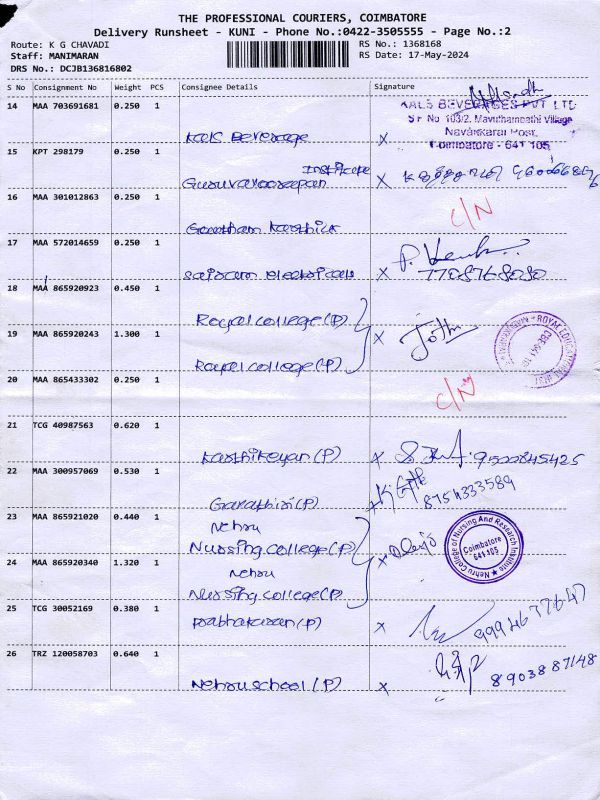 THE PROFESSIONAL COURIERS, COIMBATORE
Delivery Runsheet - KUNI - Phone No.:0422-3505555 - Page No.:2
Route: K G CHAVADI
RS No.: 1368168
Staff: MANIMARAN
RS Date: 17-May-2024
DRS No.: DCJB136816802
S No Consignment No Weight PCS Consignee Details Signature
14 MAA 703691681 0.250 1
KALS BEVERAGES PVT LTD
S F No 103/2, Mavuthampathi Village
Navakkarai Post,
Coimbatore - 641 105
Kals Beverage x
15 KPT 298179 0.250 1
Institute
x
16 MAA 301012863 0.250 1
C/N
Goutham Karthick
17 MAA 572014659 0.250 1
Sairam Electricals x
7708768080
18 MAA 865920923 0.450 1
Royal college (P)
19 MAA 865920243 1.300 1
x Jothi
Royal college (P)
20 MAA 865433302 0.250 1
C/N
21 TCG 40987563 0.620 1
Karthikeyan (P) x 9500845425
22 MAA 300957069 0.530 1
Gayathiri (P) x 8754333589
23 MAA 865921020 0.440 1
Nehru
Nursing college (P) x
Nehru College of Nursing And Research Institute
Coimbatore
641 105
24 MAA 865920340 1.320 1
Nehru
Nursing college (P)
25 TCG 30052169 0.380 1
Prabhakaran (P) x 9994677647
26 TRZ 120058703 0.640 1
Nehru school (P) x 8903887148